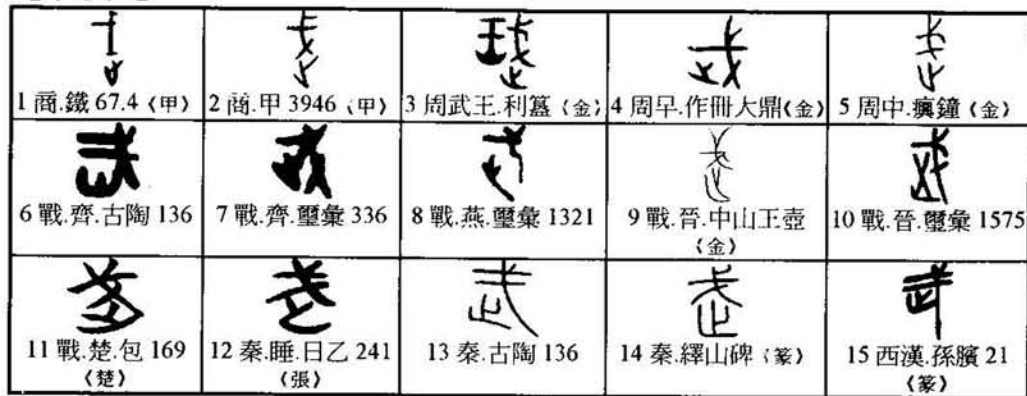 1 商.鐵 67.4〈甲〉
2 商.甲 3946〈甲〉
3 周武王.利簋〈金〉
4 周早.作冊大鼎〈金〉
5 周中.𤼈鐘〈金〉
6 戰.齊.古陶 136
7 戰.齊.璽彙 336
8 戰.燕.璽彙 1321
9 戰.晉.中山王壺
〈金〉
10 戰.晉.璽彙 1575
11 戰.楚.包 169
〈楚〉
12 秦.睡.日乙 241
〈張〉
13 秦.古陶 136
14 秦.繹山碑〈篆〉
15 西漢.孫臏 21
〈篆〉